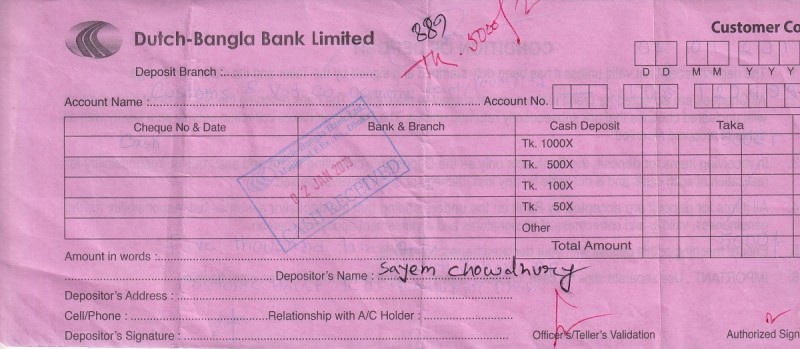 Dutch-Bangla Bank Limited
889
Tk. 5000/2
Customer Co
Deposit Branch :
D D M M Y Y Y
Account Name :
Account No.
Cheque No & Date Bank & Branch Cash Deposit Taka
Tk. 1000X
Tk. 500X
Tk. 100X
Tk. 50X
Other
Total Amount
02 JAN 2019
CASH RECEIVED
Amount in words :
Depositor's Name : Sayem chowdhury
Depositor's Address :
Cell/Phone : Relationship with A/C Holder :
Depositor's Signature : Officer's/Teller's Validation Authorized Sign